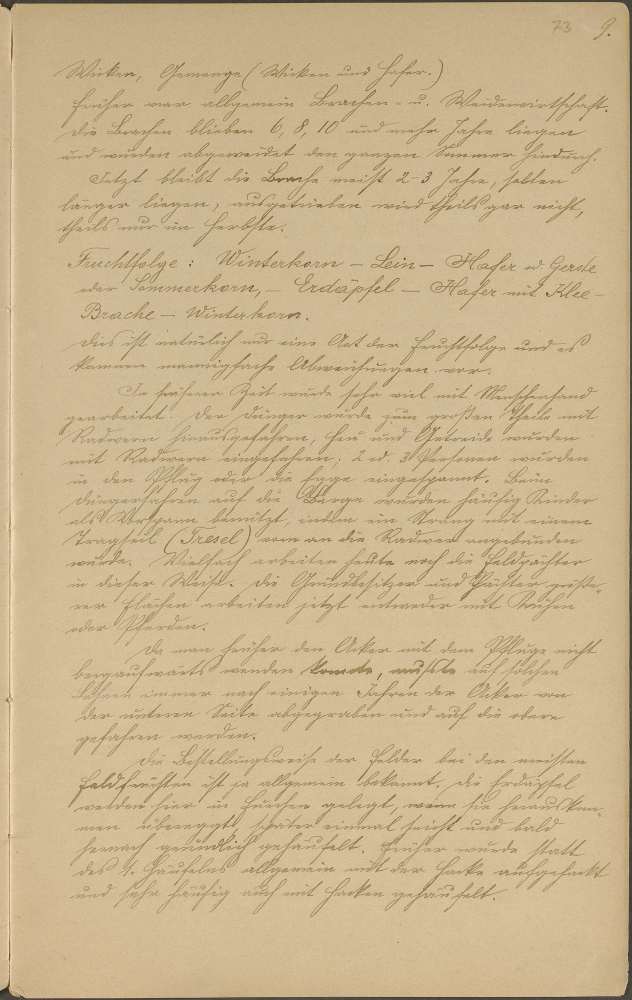 73 9.
Wicken, Gemenge (Wicken und Hafer.)
Früher war allgemein Brachen- u. Weidewirtschaft.
Die Brachen blieben 6, 8, 10 und mehr Jahre liegen
und wurden abgeweidet den ganzen Sommer hindurch.
Jetzt bleibt die Brache meist 2-3 Jahre, selten
länger liegen, ausgetrieben wird theils gar nicht,
theils nur im Herbste.
Fruchtfolge: Winterkorn – Lein – Hafer od. Gerste
oder Sommerkorn, – Erdäpfel – Hafer mit Klee –
Brache – Winterkorn.
Dies ist natürlich nur eine Art der Fruchtfolge und es
kommen mannigfache Abweichungen vor.
In früherer Zeit wurde sehr viel mit Menschenhand
gearbeitet. Der Dünger wurde zum großen Theile mit
Radwern hinausgefahren, Heu und Getreide wurden
mit Radwern eingefahren; 2 od. 3 Personen wurden
in den Pflug oder die Egge eingespannt. Beim
Düngerfahren auf die Berge wurden häufig Rinder
als Vorspann benützt, indem ein Strang mit einem
Tragseil (Tresel) vorn an die Radwer angebunden
wurde. Vielfach arbeiten heute noch die Feldpächter
in dieser Weise. Die Grundbesitzer und Pächter größe-
rer Flächen arbeiten jetzt entweder mit Kühen
oder Pferden.
Da man früher den Acker mit dem Pfluge nicht
bergaufwärts wenden konnte, musste auf solchen
Lehnen immer nach einigen Jahren der Acker von
der unteren Seite abgegraben und auf die obere
gefahren werden.
Die Bestellungsweise der Felder bei den meisten
Feldfrüchten ist ja allgemein bekannt. Die Erdäpfel
werden hier in Furchen gelegt, wenn sie herauskom-
men übereggt, später einmal seicht und bald
hernach gründlich gehäufelt. Früher wurde statt
des 1. Häufelns allgemein mit der Hacke aufgehackt
und sehr häufig auch mit Hacken gehäufelt.